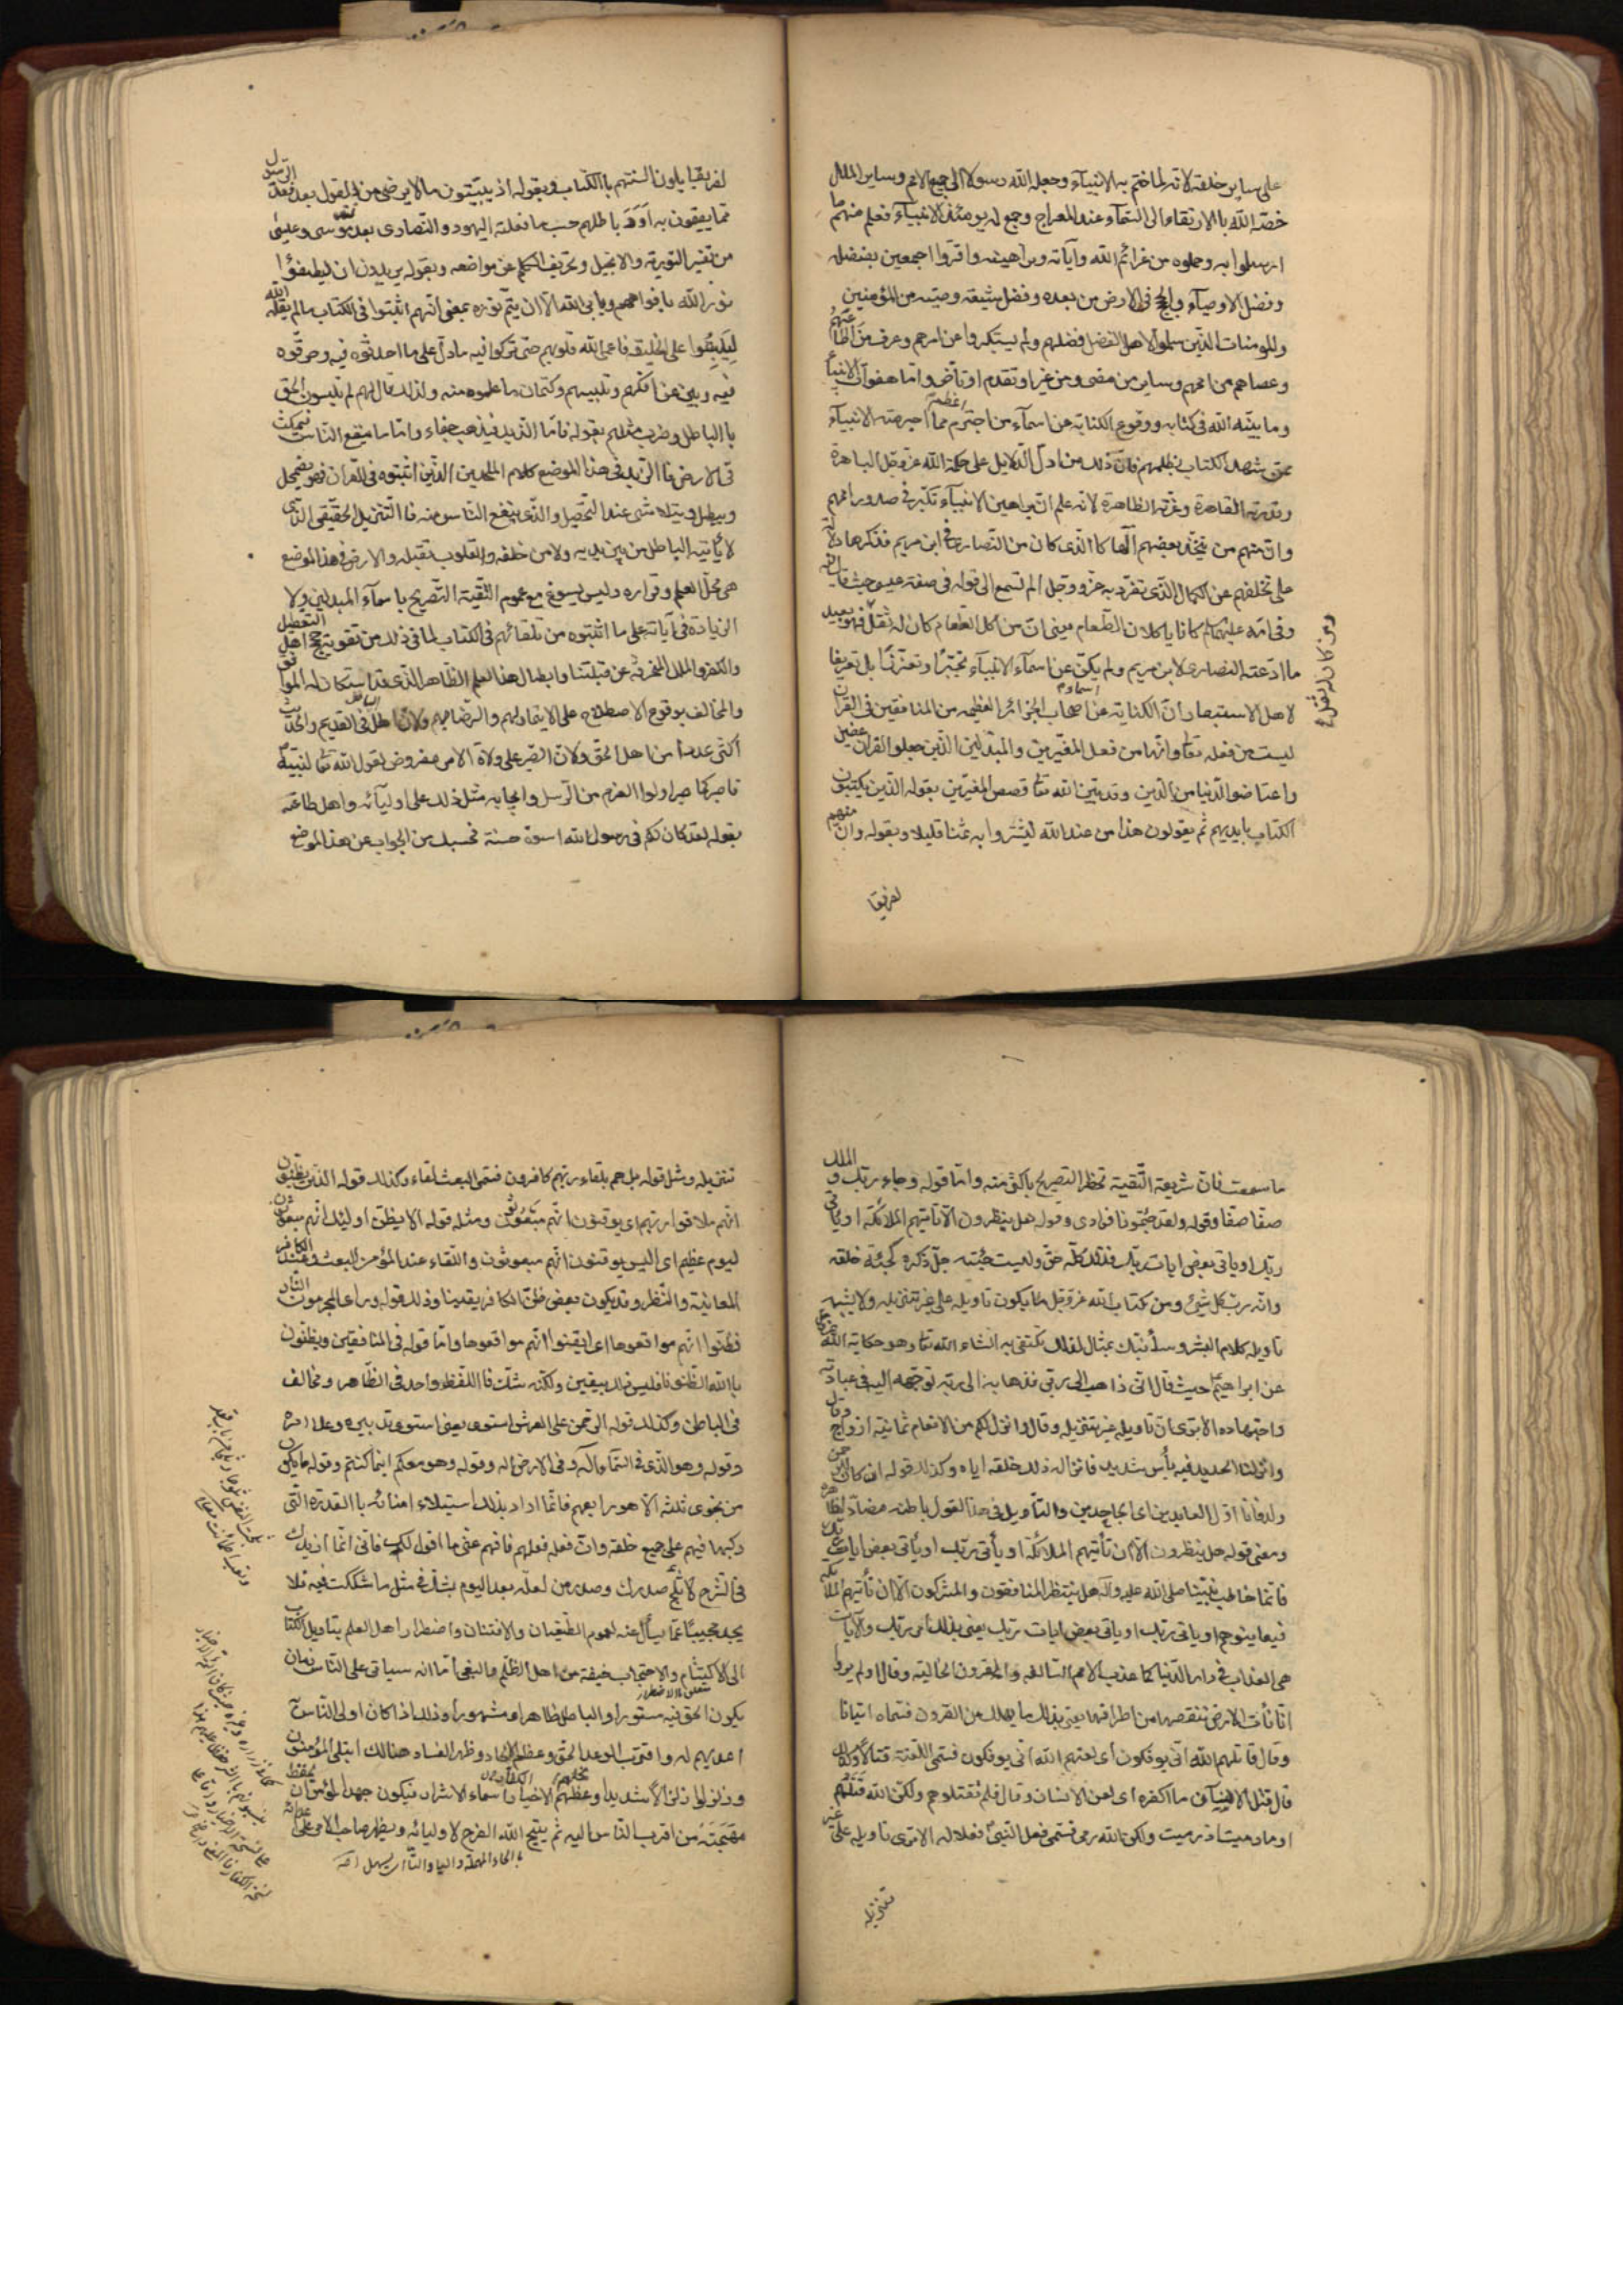 على ساير خلقه لانه لما ختم به الانبيآء وجعله الله رسولا الى جميع الامم وساير الملل
خصّه الله باالارتقاء الى السّمآء عند المعراج وجمع له يومئذ الانبيآء فعلم منهم ما
ارسلوا به وحملوه من عزائم الله وآياته وبراهينه واقرّوا اجمعين بفضله
وفضل الاوصيآء والحجج فى الارض من بعده وفضل شيعة وصيّه من المؤمنين
والمومنات الذّين سلموا لاهل الفضل فضلهم ولم يستكبروا عن امرهم وعرف من اطاعهم
وعصاهم من اممهم وساير من مضى ومن غبر او تقدم او تأخر وامّا هفوات الانبيآء
وما بيّنه الله فى كتابه ووقوع الكناية عن اسمآء من اجترم اعظم مما اجترمته الانبيآء
ممّن شهد الكتاب بظلمهم فانّ ذلك من ادلّ الدّلايل على حكمة الله عزّ وجل الباهرة
وقدرته القاهرة وعزّته الظاهرة لانّه علم انّ براهين الانبيآء تكبّر فى صدور اممهم
وانّ منهم من يتخّذ بعضهم الها كاالذى كان من النّصارى فى ابن مريم فذكرها دلالة
على تخلفهم عن الكمال الذّى تفرّد به عزّ وجل الم تسمع الى قوله فى صفة عيسى حيث قال فيه
وفى امّه عليهماالسلام كانا ياكلان الطّعام يعنى انّ من اكل الطّعام كان له ثقل فهو بعيد
ومن كان له ثقل
ما ادّعته النصارى لابن مريم ولم يكنّ عن اسمآء الانبيآء تجبّرًا وتعزّزًا بل تعريفا
لاهل الاستبصار انّ الكناية عن اسماء اصحاب الجرائر العظيمه من المنافقين فى القرآن
ليست من فعله تعا وانّها من فعل المغيّرين والمبدّلين الذّين جعلوا القرآن عضين
واعتاضوا الدّنيا من الدّين وقد بيّن الله تعا قصص المغيّرين بقوله الذّين يكتبون
الكتاب بايديهم ثم يقولون هذا من عند الله ليشتروا به ثمنا قليلا وبقوله وانّ منهم
لفريقا
لفريقا يلون السنتهم باالكتاب وبقوله اذ يبيّتون مالايرضى من القول بعد فقد الرّسول
ممّا يقيمون به اود باطلهم حسب ما فعلته اليهود والنّصارى بعد فقد موسى وعيسى
من تغيير التورية والانجيل وتحريف الكلم عن مواضعه وبقوله يريدون ان ليطفئوا
نور الله بافواههم ويابى الله الّا ان يتمّ نوره يعنى انّهم اثبتوا فى الكتاب مالم يقله الله
لِيَلبِسُوا على الخليقة فاعمى الله قلوبهم حتى تركوا فيه ما دلّ على ما احدثوه فيه وحرّفوه
فيه وبيّن عن افكهم وتلبيسهم وكتمان ما علموه منه ولذلك قال لهم لم تلبسون الحق
باالباطل وضرب مثلهم بقوله فامّا الزّبد فيذهب جفاء وامّا ما ينفع النّاس فيمكث
فى الارض فاالزّبد فى هذا الموضع كلام الملحدين الذّين اثبتوه فى القران فهو يضمحل
ويبطل ويتلاشى عند التّحصيل والذّى ينفع النّاس منه فاالتّنزيل الحقيقى الذّى
لاياتيه الباطل من بين يديه ولا من خلفه والقلوب تقبله والارض فى هذا الموضع
هى محلّ العلم وقراره وليس يسوغ مع عموم التّقيّة التّصريح باسمآء المبدّلين ولا
الزيادة فى آياته على ما اثبتوه من تلقائهم فى الكتاب لما فى ذلك من تقوية حجج اهل التعطيل
والكفر والملل المنحرفه عن قبلتنا وابطال هذا العلم الظّاهر الذّى قد استكان له الموافق
والمخالف بوقوع الاصطلاح على الايتمار لهم والرّضا بهم ولانّ اهل الباطل فى القديم والحديث
اكثر عددا من اهل الحق ولانّ الصّبر على ولاة الامر مفروض لقول الله تعا لنبيّه
فاصبر كما صبر اولوا العزم من الرّسل وايجابه مثل ذلك على اوليآئه واهل طاعته
بقوله لقد كان لكم فى رسول الله اسوة حسنة فحسبك من الجواب عن هذا الموضع
ما سمعت فانّ شريعة التّقية تحظر التصريح باكثر منه وامّا قوله وجاء ربّك و الملك
صفّا صفّا وقوله ولقد جئتمونا فرادى وقوله هل ينظرون الّا ان تاتيهم الملائكة او ياتى
ربّك او ياتى بعض ايات ربّك فذلك كلّه حقّ وليست جيئته جلّ ذكره كجيئة خلقه
وانّه ربّ كلّ شئ ومن كتاب الله عزّ وجل ما يكون تاويله على غير تنزيله ولايشبه
تاويله كلام البشر وسأنبئك بمثال لذلك تكتفى به انشاء الله تعا وهو حكاية الله عز وجل
عن ابراهيم حيث قال انّى ذاهب الى ربّى فذهابه الى ربّه توجّهه اليه فى عبادته
واجتهاده الا ترى انّ تاويله غير تنزيله وقال وانزل لكم من الانعام ثمانية ازواج وقال
وانزلنا الحديد فيه بأس شديد فانزاله ذلك خلقه ايّاه وكذلك قوله ان كان للرّحمن
ولد فانا اوّل العابدين اى الجاحدين والتّأويل فى هذا القول باطنه مضادّ لظاهره
ومعنى قوله هل ينظرون الّا ان تأتيهم الملائكة او يأتى ربّك او يأتى بعض ايات ربّك
فانّما خاطب نبيّنا صلى الله عليه وآله هل ينتظر المنافقون والمشركون الّا ان تأتيهم الملائكة
فيعاينوهم او ياتى ربّك او ياتى بعض ايات ربّك يعنى بذلك امر ربّك والآيات
هى العذاب فى دار الدّنيا كما عذّب الامم السّالفه والقرون الخالية وقال اولم يروا
انّا نأت الارض ننقصها من اطرافها يعنى بذلك ما يهلك من القرون فسمّاه اتيانا
وقال قاتلهم الله انّى يوفكون اى لعنهم الله انّى يوفكون فسمّى اللّعنة قتالًا وكذلك
قال قتل الانسان ما اكفره اى لعن الانسان وقال فلم تقتلوهم ولكنّ الله قتلهم
او ما رميت اذ رميت ولكن الله رمى فسمّى فعل النّبىّ فعلا له الا ترى تاويله على غير
تنزيله
تنزيله ومثل قوله بل هم بلقاء ربّهم كافرون فسمّى البعث لقاء وكذلك قوله الذّين يظنّون
انّهم ملاقوا ربّهم اى يوقنون انّهم مبعوثون ومثله قوله الا يظنّ اولئك انّهم مبعوثون
ليوم عظيم اى اليس يوقنون انّهم مبعوثون واللّقاء عند المؤمن البعث وعند الكافر
المعاينة والنّظر وقد يكون بعض ظنّ الكافر يقينا وذلك قوله وراى المجرمون النّار
فظنّوا انّهم مواقعوها اى ايقنوا انّهم مواقعوها وامّا قوله فى المنافقين ويظنّون
باالله الظّنونا فليس ذلك بيقين ولكنّه شكّ فاللّفظ واحد فى الظّاهر ومخالف
فى الباطن وكذلك قوله الرّحمن على العرش استوى يعنى استوى تدبيره وعلا امره
وقوله وهو الذّى فى السّماء آله وفى الارض اله وقوله وهو معكم اينما كنتم وقوله ما يكون
من نجوى ثلثة الّا هو رابعهم فانّما اراد بذلك استيلاء امنائه باالقدرة التّى
ركبها فيهم على جميع خلقه وانّ فعله فعلهم فافهم عنّى ما اقول لك فانّى انّما ازيدك
فى الشّرح لاثلج صدرك وصدر من لعلّه بعد اليوم يشكّ فى مثل ما شككت فيه فلا
يجد مجيبًا عمّا يسأل عنه لعموم الطّغيان والافتتان واضطرار اهل العلم بتاويل الكتاب
الى الاكتتام والاحتجاب خيفة من اهل الظّلم والبغى امّا انه سياتى على النّاس زمان
يكون الحق فيه مستورا والباطل ظاهرا ومشهورا وذلك اذا كان اولى النّاس
اعديهم له واقترب الوعد الحق وعظم الالحاد وظهر الفساد هنالك ابتلى المؤمنون
وزلزلوا زلزالًا شديدا ونحلهم الكفّار اسماء الاشرار فيكون جهد المؤمن ان يحفظ
مهجته من اقرب النّاس اليه ثم يتيح الله الفرج لاوليائه ويظهر صاحب الامر على اعدائه